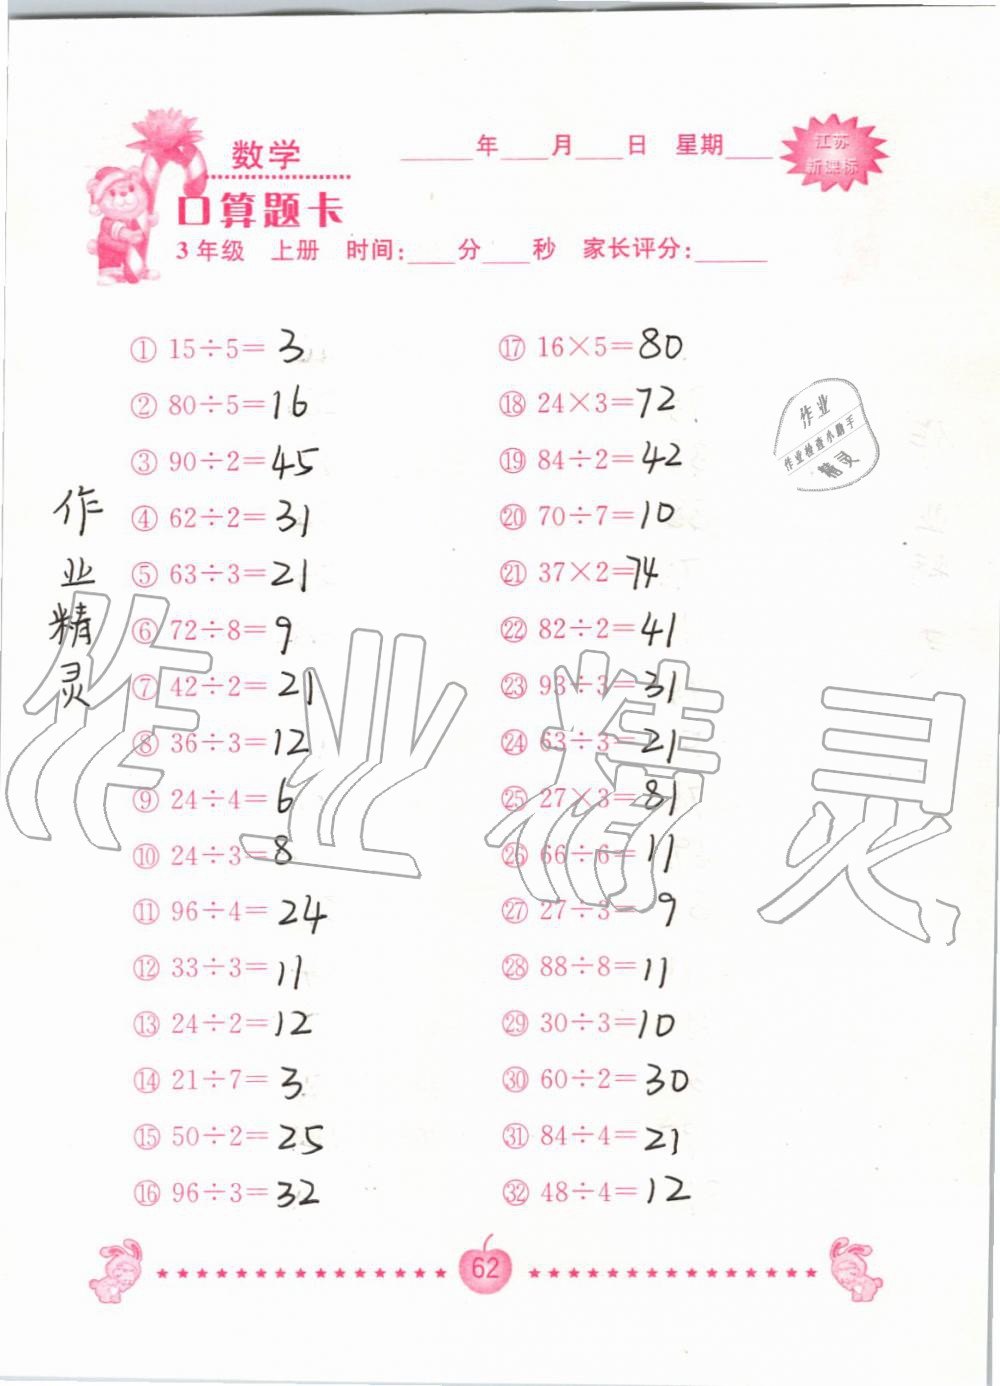 数学
____年____月____日 星期____
江苏
新课标
口算题卡
3年级 上册 时间:____分____秒 家长评分:______
① 15÷5=3
② 80÷5=16
③ 90÷2=45
④ 62÷2=31
⑤ 63÷3=21
⑥ 72÷8=9
⑦ 42÷2=21
⑧ 36÷3=12
⑨ 24÷4=6
⑩ 24÷3=8
⑪ 96÷4=24
⑫ 33÷3=11
⑬ 24÷2=12
⑭ 21÷7=3
⑮ 50÷2=25
⑯ 96÷3=32
⑰ 16×5=80
⑱ 24×3=72
⑲ 84÷2=42
⑳ 70÷7=10
㉑ 37×2=74
㉒ 82÷2=41
㉓ 93÷3=31
㉔ 63÷3=21
㉕ 27×3=81
㉖ 66÷6=11
㉗ 27÷3=9
㉘ 88÷8=11
㉙ 30÷3=10
㉚ 60÷2=30
㉛ 84÷4=21
㉜ 48÷4=12
作业精灵
作业
作业检查小助手
精灵
作业精灵
62